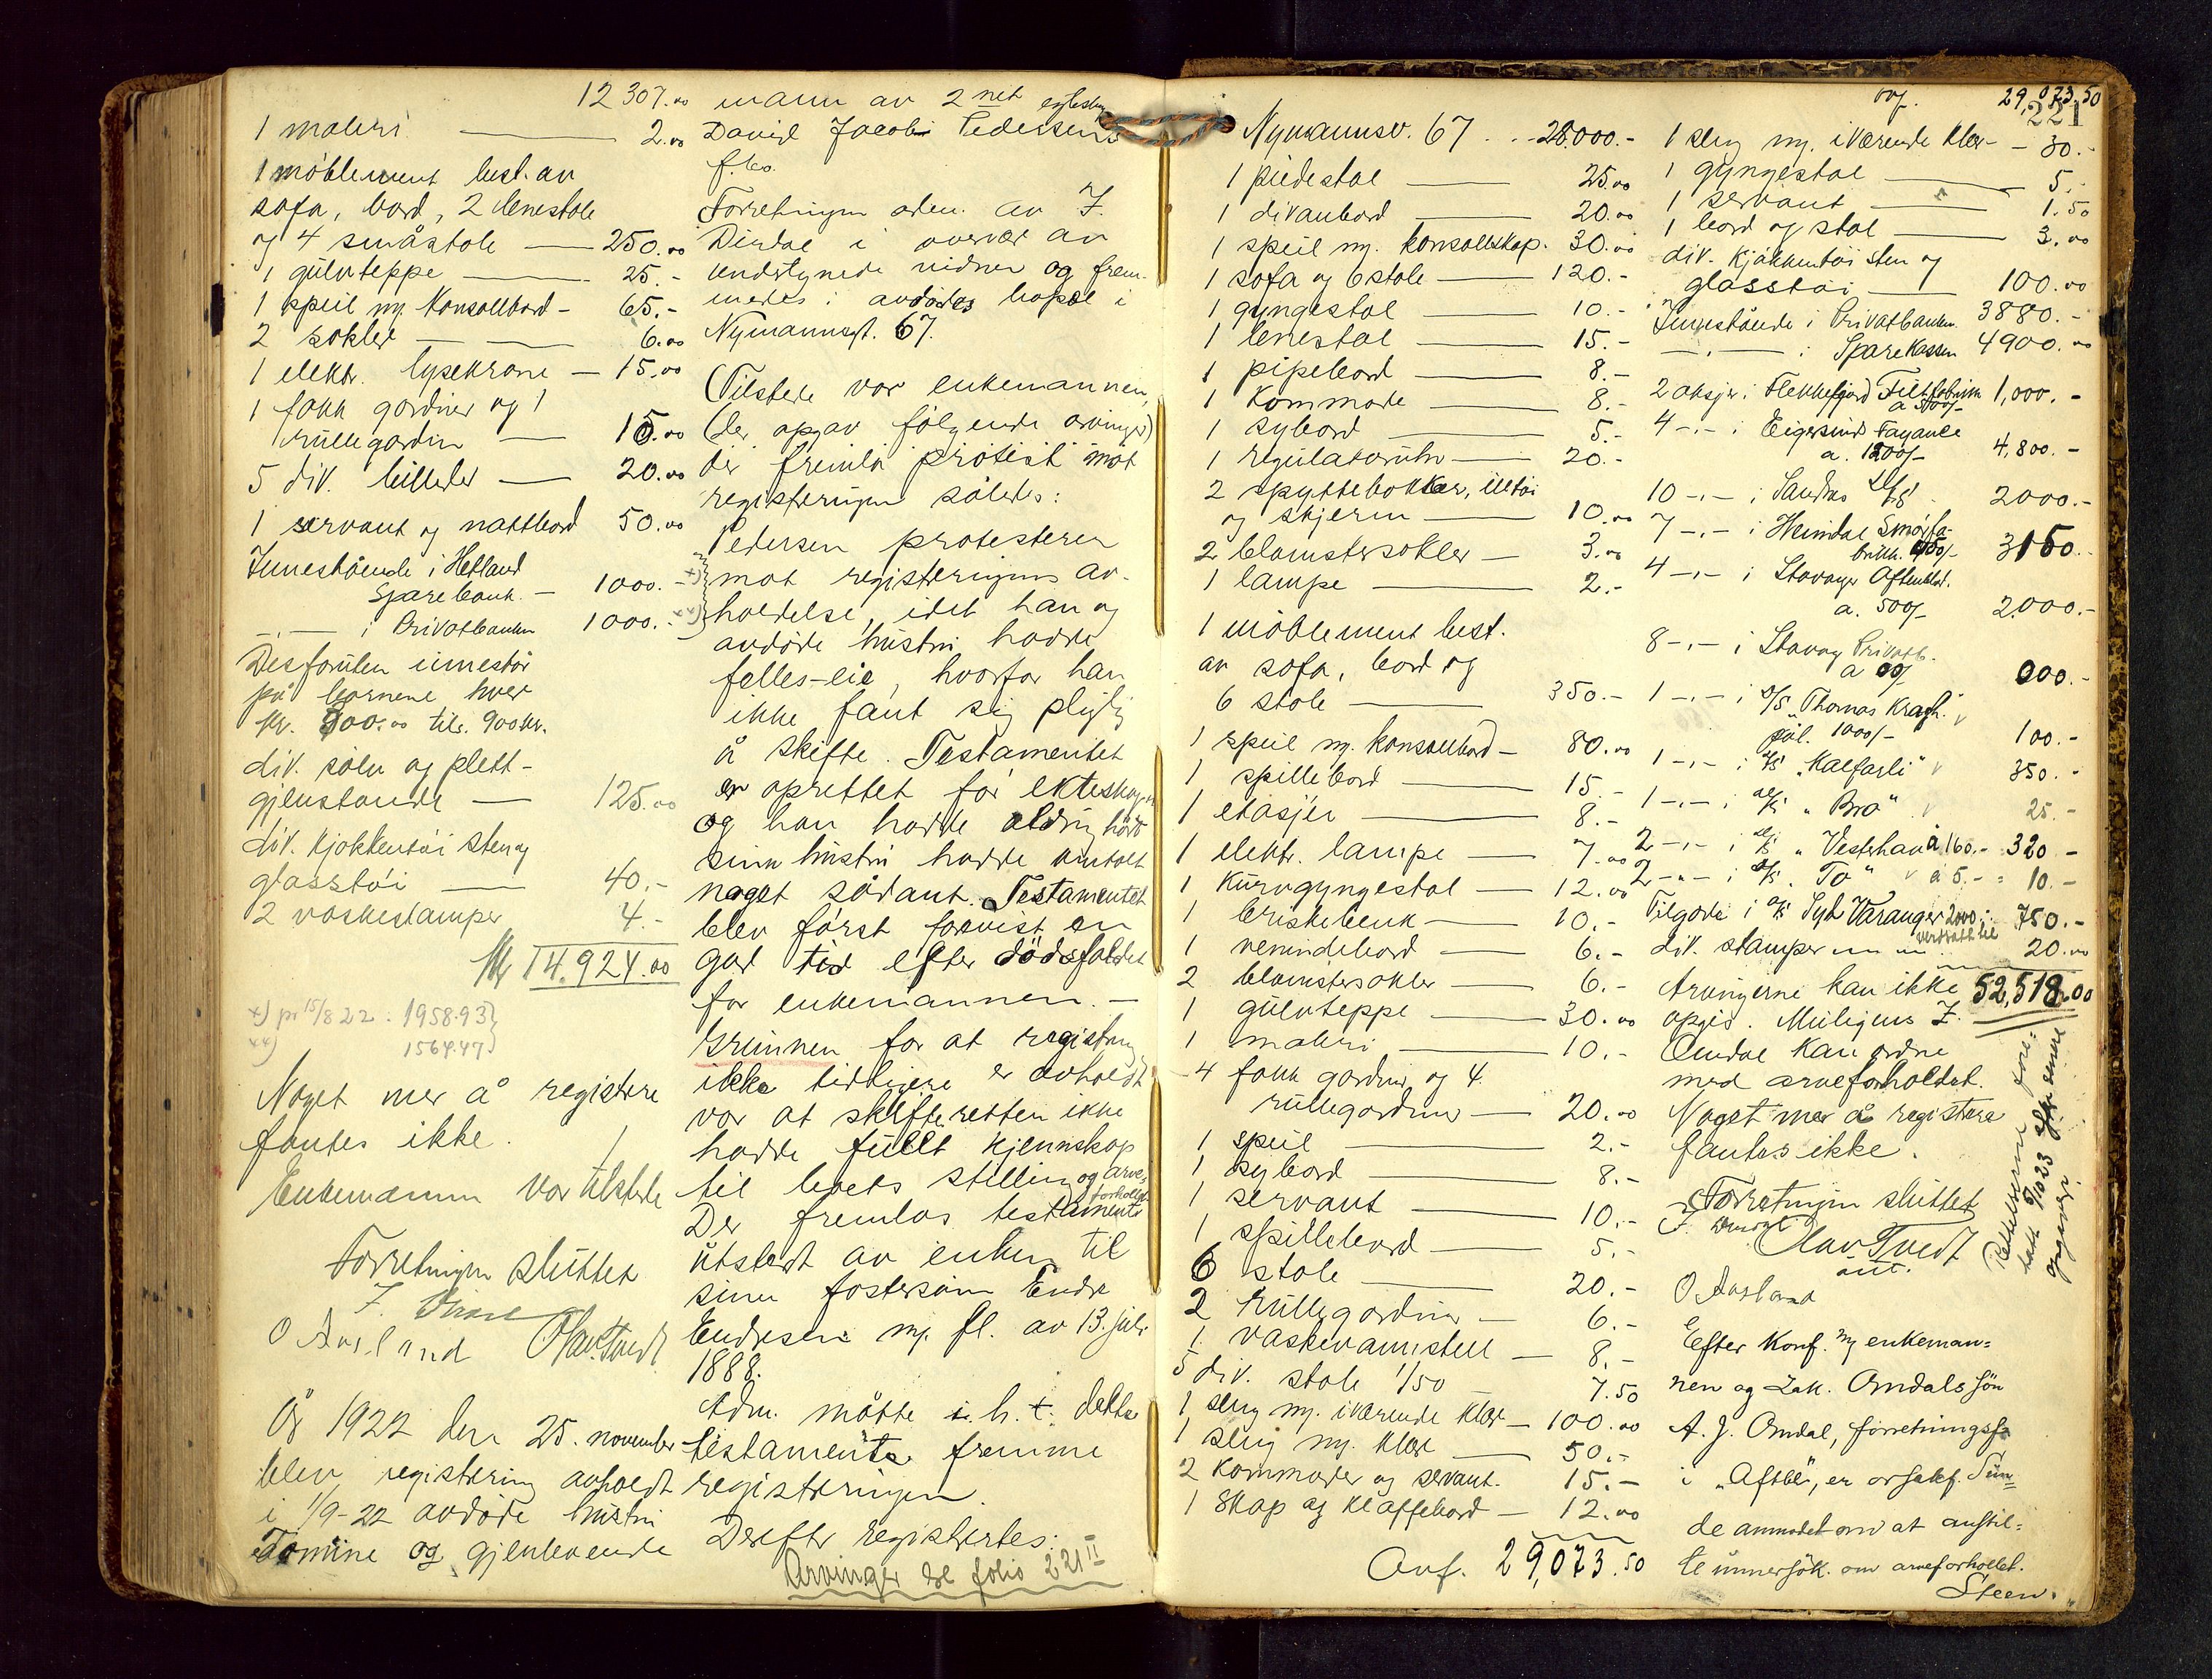 12307.00
1 maleri — 2.00
1 möblement best. av
sofa, bord, 2 lenestole
og 4 småstole — 250.00
1 gulvteppe — 25.-
1 speil m/ konsollbord - 65.-
2 sokler — 6.00
1 elektr. lysekrone — 15.00
1 fakk gardiner og 1
rullegardin — 15.00
5 div. billeder — 20.00
1 servant og nattbord 50.00
Innestående i Hetland
Sparebank. — 1000.- x)
—„— i Privatbanken 1000.- xx)
Desforuten innestår
på barnene hver
kr. 800.00 til. 900 kr.
div. sölv og plett-
gjenstande — 125.00
div. kjökkentöi sten og
glasstöi — 40.-
2 vaskestamper 4.-
Kr 14.924.00
x) pr 15/8 22 : 1958.93
xx) 1564.47
Noget mer å registrere
fantes ikke.
Enkemannen var tilstede
Forretningen sluttet
O Aasland Olav Tvedt
År 1922 den 25. november
blev registrering avholdt
i 1/9-22 avdöde hustru
Tomine og gjenlevende
mann av 2net egteskap
David Jacob Pedersens
f.bo.
Forretningen adm. av Z.
Dirdal i overvær av
undertegnede vidner og frem-
medes i avdödes bopæl i
Nymannsgt. 67.
Tilstede var enkemannen,
(der opgav fölgende arvinger)
der fremla protest mot
registreringen således:
Pedersen protesterer
mot registreringens av-
holdelse, idet han og
avdöde hustru hadde
felles-eie, hvorfor han
ikke fant sig pligtig
å skifte. Testamentet
er oprettet för ekteskapet
og han hadde aldrig hört
sin hustru hadde omtalt
noget sådant. Testamentet
blev först forevist en
god tid efter dödsfaldet
for enkemannen. —
Grunnen for at registrering
ikke tidligere er avholdt
var at skifteretten ikke
hadde fullt kjennskap
til boets stilling og arve-
forholdet
Der fremlas testamente
utstedt av enken til
sin fostersön Endre
Endresen m. fl. av 13. juli
1888.
Adm. måtte i. h. t. dette
testamente fremme
registreringen.
Derefter registrertes:
Arvinger se folio 221 II
Nymannsv. 67 .. 28.000.-
1 piedestal — 25.00
1 divanbord — 20.00
1 speil m/ konsollskap. 30.00
1 sofa og 6 stole — 120.-
1 gyngestol — 10.-
1 lenestol — 15.-
1 pipebord — 8.-
1 kommode — 8.-
1 sybord — 5.-
1 regulatoruhr — 20.-
2 spyttebakker, illtöi
og skjerm — 10.00
2 blomstersokler — 3.00
1 lampe — 2.-
1 möblement best.
av sofa, bord og
6 stole — 350.-
1 speil m/ konsollbord — 80.00
1 spillebord — 15.-
1 etasjer — 8.-
1 elektr. lampe — 7.00
1 kurvgyngestol — 12.00
1 briskebenk — 10.-
1 venindebord — 6.-
2 blomstersokler — 6.-
1 gulvteppe — 30.00
1 maleri — 10.-
4 fakk gardiner og 4
rullegardiner — 20.00
1 speil — 2.-
1 sybord — 8.-
1 servant — 10.-
1 spillebord — 5.-
6 stole — 20.-
2 rullegardiner — 6.-
1 vaskevannstell — 8.-
5 div. stole 1/50 — 7.50
1 seng m/ iværende klær — 100.00
1 seng m/ klær — 50.-
2 kommoder og servant. 15.-
1 skap og klaffebord — 12.00
Ovf. 29,073.50
ovf. 29,073.50
221
1 seng m/ iværende klær - 30.-
1 gyngestol — 5.-
1 servant — 1.50
1 bord og stol — 3.00
div. kjökkentöi sten og
glasstöi — 100.00
Innestående i Privatbanken 3880.-
—„— i Sparekassen 4900.00
2 aksjer i Flekkefjord Filtfabrikk
a 500/- 1,000.-
4 -„- i Eigersunds Fayance
a. 1200/- 4,800.-
10 -„- i Sandnes A/S 2000.-
7 -„- i Heimdal Smörfa-
brikk. 450/- 3150.-
4 -„- i Stavanger Aftenblad.
a. 500/- 2000.-
8 -„- i Stavang Privatb.
a 00/ 000.-
1 -„- i A/S „Thomas Krag".
pål. 1000/- 100.-
1 -„- i A/S „Kalfarli" 350.-
1 -„- i A/S „Bro" 25.-
2 -„- i A/S „Vesterhav" à 160.- 320.-
2 -„- i A/S „To" à 5.- = 10.-
Tilgode i A/S Syd Varanger 2000.- 750.-
verdsatt til
div. stamper m m. 20.00
52,518.00
Arvingerne kan ikke
opgis. Muligens Z.
Omdal kan ordne
med arveforholdet.
Noget mer å registrere
fantes ikke.
Forretningen sluttet
Z. Dirdal
Olav Tvedt
O Aasland
Rettelserne fore-
tatt 5/10 23 efter senere
opgaver.
Efter konf. m/ enkeman-
nen og Zak. Omdals sön
A. J. Omdal, forretningsf.
i „Aftbl", er
de anmodet om at anstil-
le unnersök. om arveforholdet.
Steen.